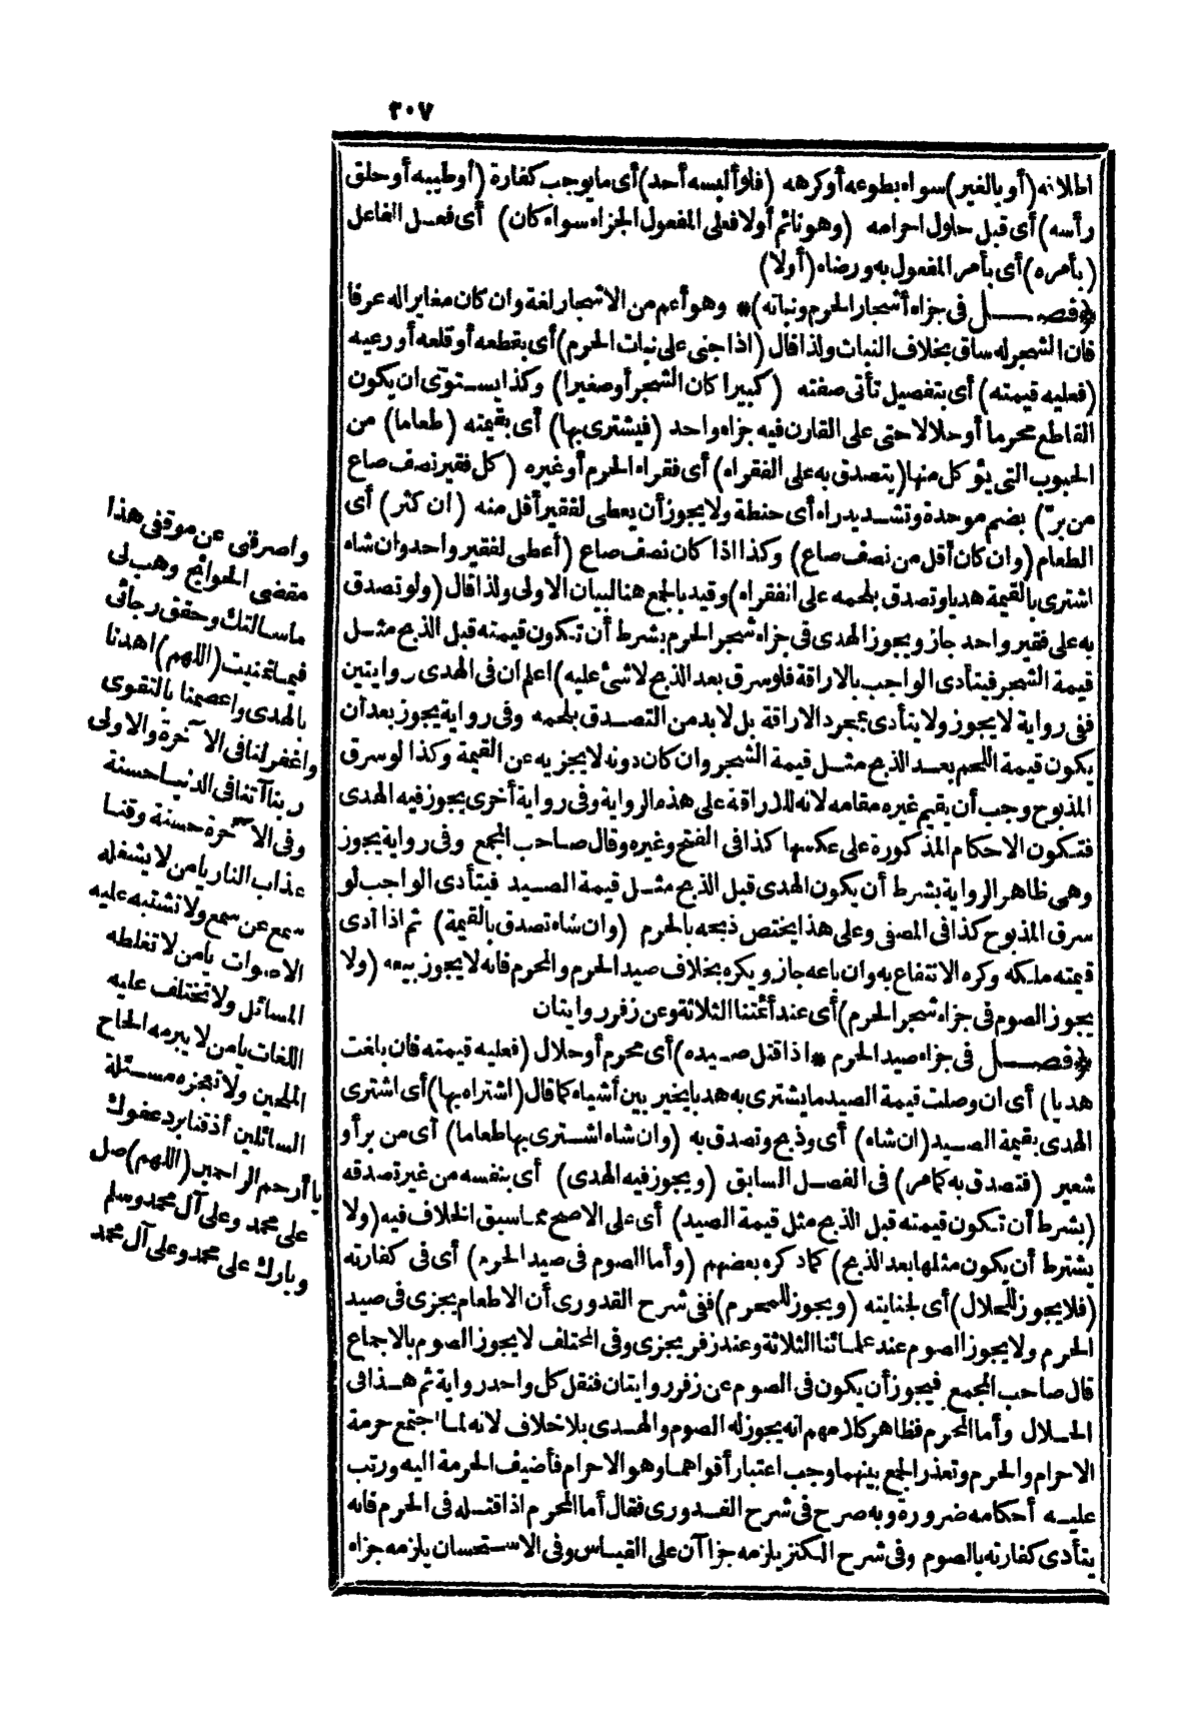 ٢٠٧
اطلاقه (أو بالغير) سواء بطوعه أو كرهه (فلو ألبسه أحد) أى ما يوجب كفارة (أو طيبه أو حلق
رأسه) أى قبل حلول احرامه (وهو نائم أولا فعلى المفعول الجزاء سواء كان) أى فعل الفاعل
(بأمره) أى بأمر المفعول به ورضاه (أولا)
﴿فصل فى جزاء أشجار الحرم ونباته﴾* وهو أعم من الاشجار لغة وان كان مغايرا له عرفا
فان الشجر له ساق بخلاف النبات ولذا قال (اذا جنى على نبات الحرم) أى بقطعه أو قلعه أو رعيه
(فعليه قيمته) أى بتفصيل تأتى صفته (كبيرا كان الشجر أو صغيرا) وكذا يستوى ان يكون
القاطع محرما أو حلالا حتى على القارن فيه جزاء واحد (فيشترى بها) أى بقيمته (طعاما) من
الحبوب التى يؤكل منها (يتصدق به على الفقراء) أى فقراء الحرم أو غيره (كل فقير نصف صاع
من بر) بضم موحدة وتشديد راء أى حنطة ولا يجوز أن يعطى لفقير أقل منه (ان كثر) أى
الطعام (وان كان أقل من نصف صاع) وكذا اذا كان نصف صاع (أعطى لفقير واحد وان شاء
اشترى بالقيمة هديا وتصدق بلحمه على الفقراء) وقيد بالجمع هنا لبيان الاولى ولذا قال (ولو تصدق
به على فقير واحد جاز ويجوز الهدى فى جزاء شجر الحرم بشرط أن تكون قيمته قبل الذبح مثل
قيمة الشجر فيتأدى الواجب بالاراقة فلو سرق بعد الذبح لا شئ عليه) اعلم ان فى الهدى روايتين
ففى رواية لا يجوز ولا يتأدى بمجرد الاراقة بل لابد من التصدق بلحمه وفى رواية يجوز بعد أن
يكون قيمة اللحم بعد الذبح مثل قيمة الشجر وان كان دونه لا يجزيه عن القيمة وكذا لو سرق
المذبوح وجب أن يقيم غيره مقامه لانه للاراقة على هذه الرواية وفى رواية أخرى يجوز فيه الهدى
فتكون الاحكام المذكورة على عكسها كذا فى الفتح وغيره وقال صاحب المجمع وفى رواية يجوز
وهى ظاهر الرواية بشرط أن يكون الهدى قبل الذبح مثل قيمة الصيد فيتأدى الواجب لو
سرق المذبوح كذا فى المصفى وعلى هذا يختص ذبحه بالحرم (وان شاء تصدق بالقيمة) ثم اذا أدى
قيمته ملكه وكره الانتفاع به وان باعه جاز ويكره بخلاف صيد الحرم والمحرم فانه لا يجوز بيعه (ولا
يجوز الصوم فى جزاء شجر الحرم) أى عند أئمتنا الثلاثة وعن زفر روايتان
﴿فصل فى جزاء صيد الحرم * اذا قتل صيده) أى محرم أو حلال (فعليه قيمته فان بلغت
هديا) أى ان وصلت قيمة الصيد ما يشترى به هديا يخير بين أشياء كما قال (اشتراه بها) أى اشترى
الهدى بقيمة الصيد (ان شاء) أى وذبح وتصدق به (وان شاء اشترى بها طعاما) أى من بر أو
شعير (فتصدق به كما مر) فى الفصل السابق (ويجوز فيه الهدى) أى بنفسه من غير تصدقه
(بشرط أن تكون قيمته قبل الذبح مثل قيمة الصيد) أى على الاصح مما سبق الخلاف فيه (ولا
يشترط أن يكون مثلها بعد الذبح) كما ذكره بعضهم (وأما الصوم فى صيد الحرم) أى فى كفارته
(فلا يجوز للحلال) أى لجنايته (ويجوز للمحرم) ففى شرح القدورى أن الاطعام يجزى فى صيد
الحرم ولا يجوز الصوم عند علمائنا الثلاثة وعند زفر يجزى وفى المختلف لا يجوز الصوم بالاجماع
قال صاحب المجمع فيجوز أن يكون فى الصوم عن زفر روايتان فنقل كل واحد رواية ثم هذا فى
الحلال وأما المحرم فظاهر كلامهم انه يجوز له الصوم والهدى بلا خلاف لانه لما اجتمع حرمة
الاحرام والحرم وتعذر الجمع بينهما وجب اعتبار أقواهما وهو الاحرام فأضيف الحرمة اليه ورتب
عليه أحكامه ضرورة وبه صرح فى شرح القدورى فقال أما المحرم اذا قتله فى الحرم فانه
يتأدى كفارته بالصوم وفى شرح الكنز يلزمه جزاآن على القياس وفى الاستحسان يلزمه جزاء
واصرفنى عن موقفى هذا
مقضى الحوائج وهب لى
ما سالتك وحقق رجائى
فيما تمنيت (اللهم) اهدنا
بالهدى واعصمنا بالتقوى
واغفر لنا فى الآخرة والاولى
ربنا آتنا فى الدنيا حسنة
وفى الآخرة حسنة وقنا
عذاب النار يا من لا يشغله
سمع عن سمع ولا تشتبه عليه
الاصوات يا من لا تغلطه
المسائل ولا تختلف عليه
اللغات يا من لا يبرمه الحاح
الملحين ولا تعجزه مسئلة
السائلين أذقنا برد عفوك
يا أرحم الراحمين (اللهم) صل
على محمد وعلى آل محمد وسلم
وبارك على محمد وعلى آل محمد